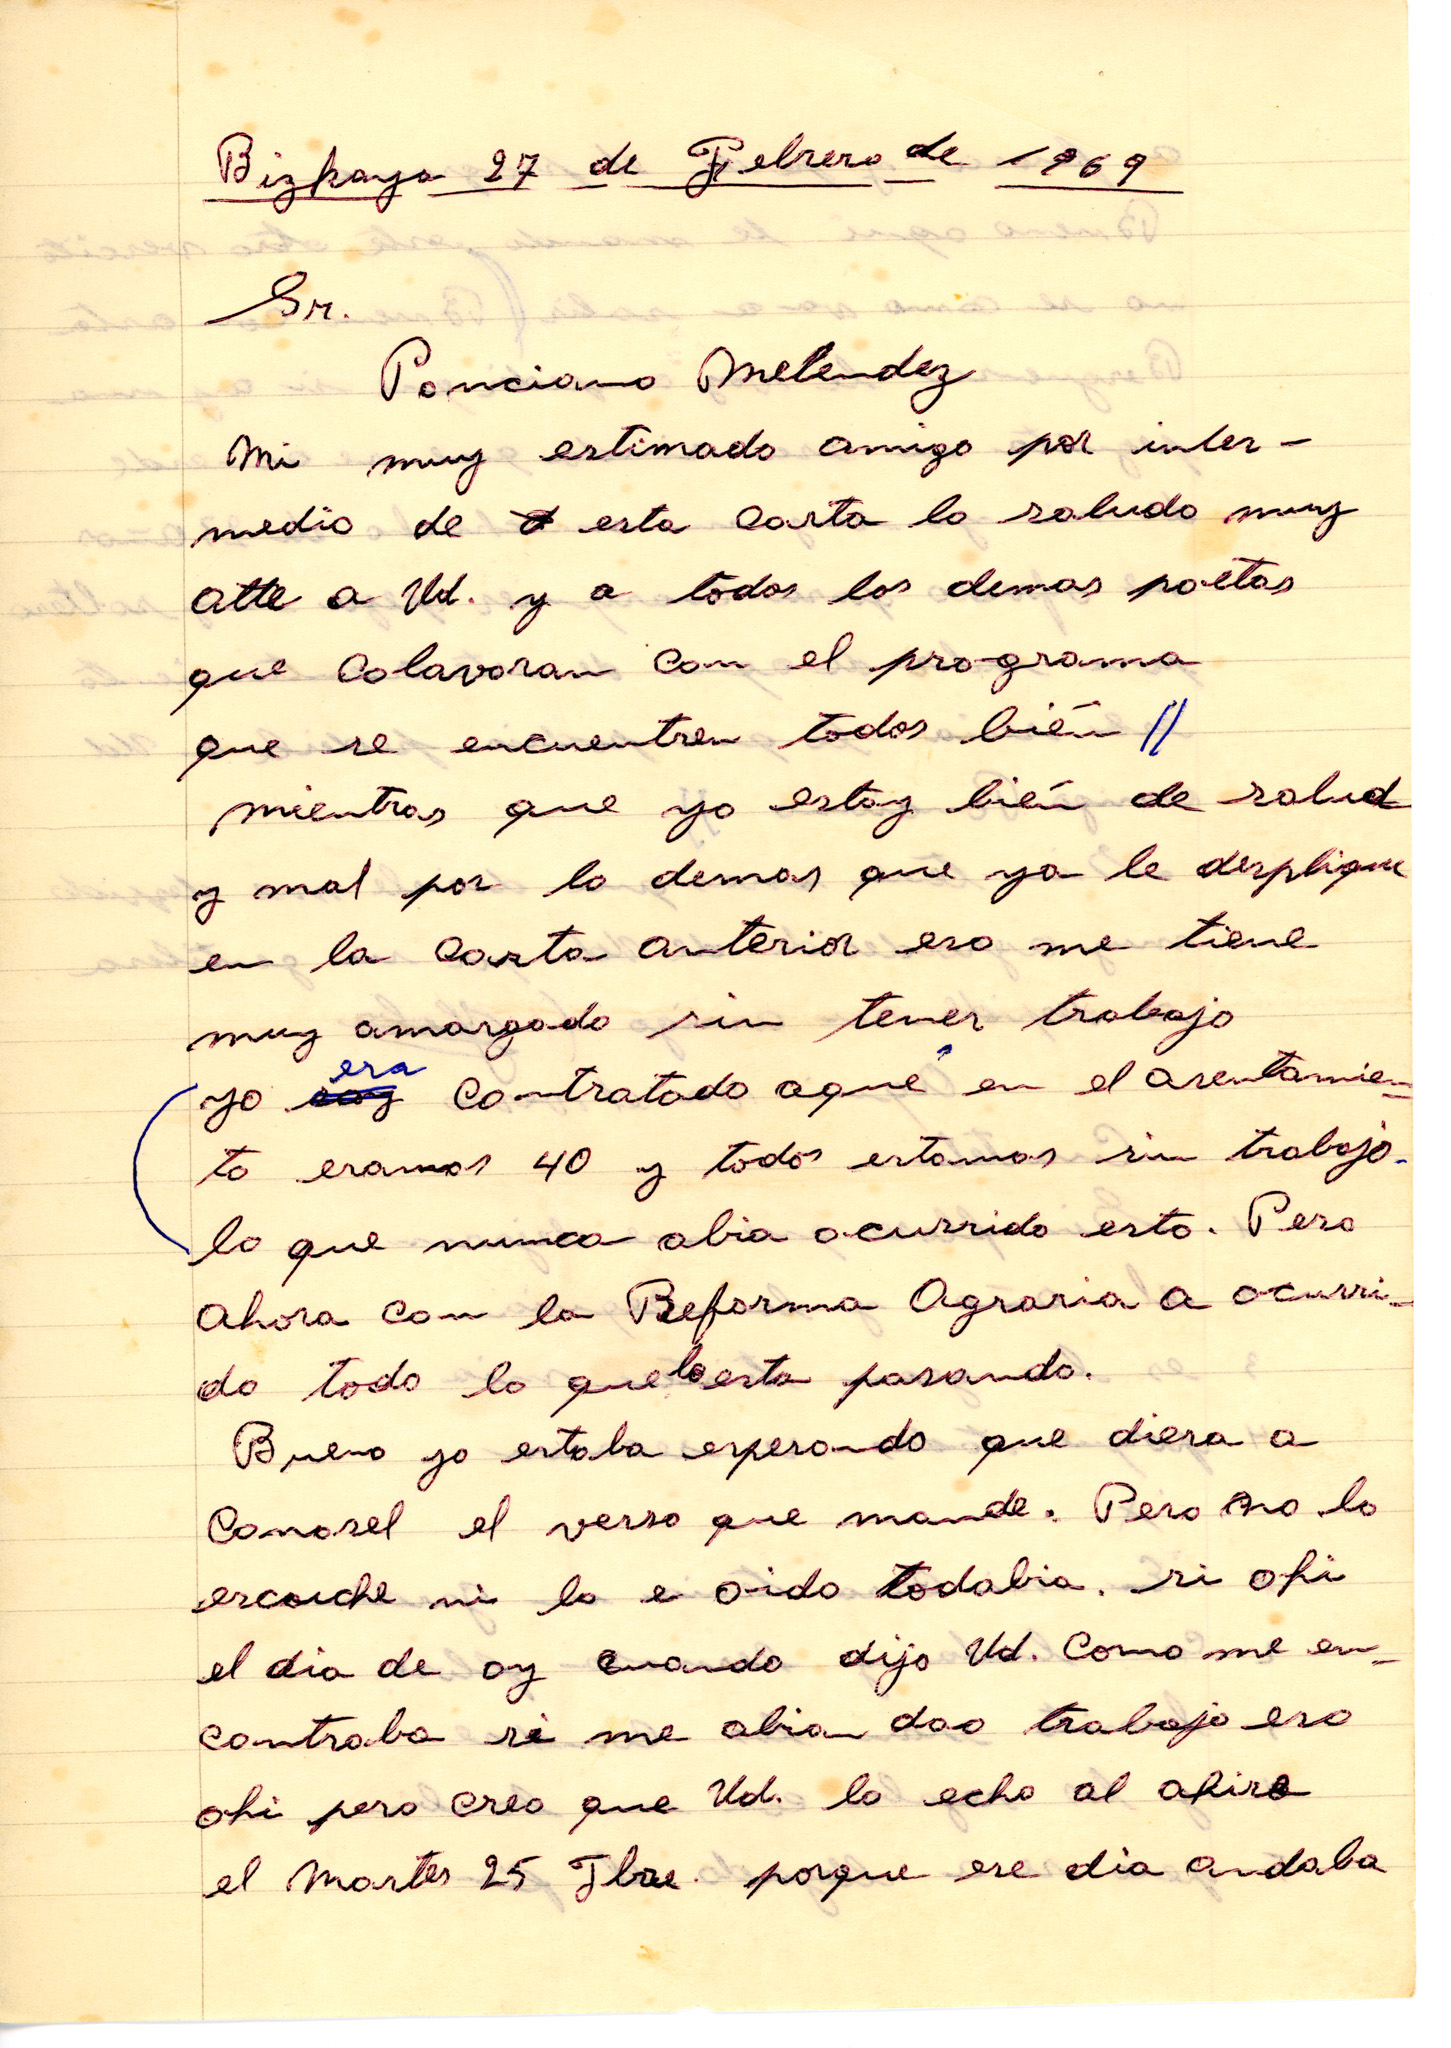 Bizkaya 27 de Febrero de 1969
Sr.
Ponciano Melendez
Mi muy estimado amigo por inter-
medio de esta carta lo saludo muy
atte a Ud. y a todos los demas poetas
que colavoran con el programa
que se encuentren todos bién //
mientras que yo estoy bién de salud
y mal por lo demas que ya le desplique
en la carta anterior eso me tiene
muy amargado sin tener trabajo
yo soy era contratado aqui en el asentamien-
to eramos 40 y todos estamos sin trabajo.
lo que nunca abia ocurrido esto. Pero
ahora con la Reforma Agraria a ocurri-
do todo lo que lo esta pasando.
Bueno yo estaba esperando que diera a
conosel el verso que mande. Pero no lo
escouche ni lo e oido todabia. si ohi
el dia de oy cuando dijo Ud. como me en-
contraba si me abian dao trabajo eso
ohi pero creo que Ud. lo echo al ahire
el Martes 25 Fbre. porque ese dia andaba